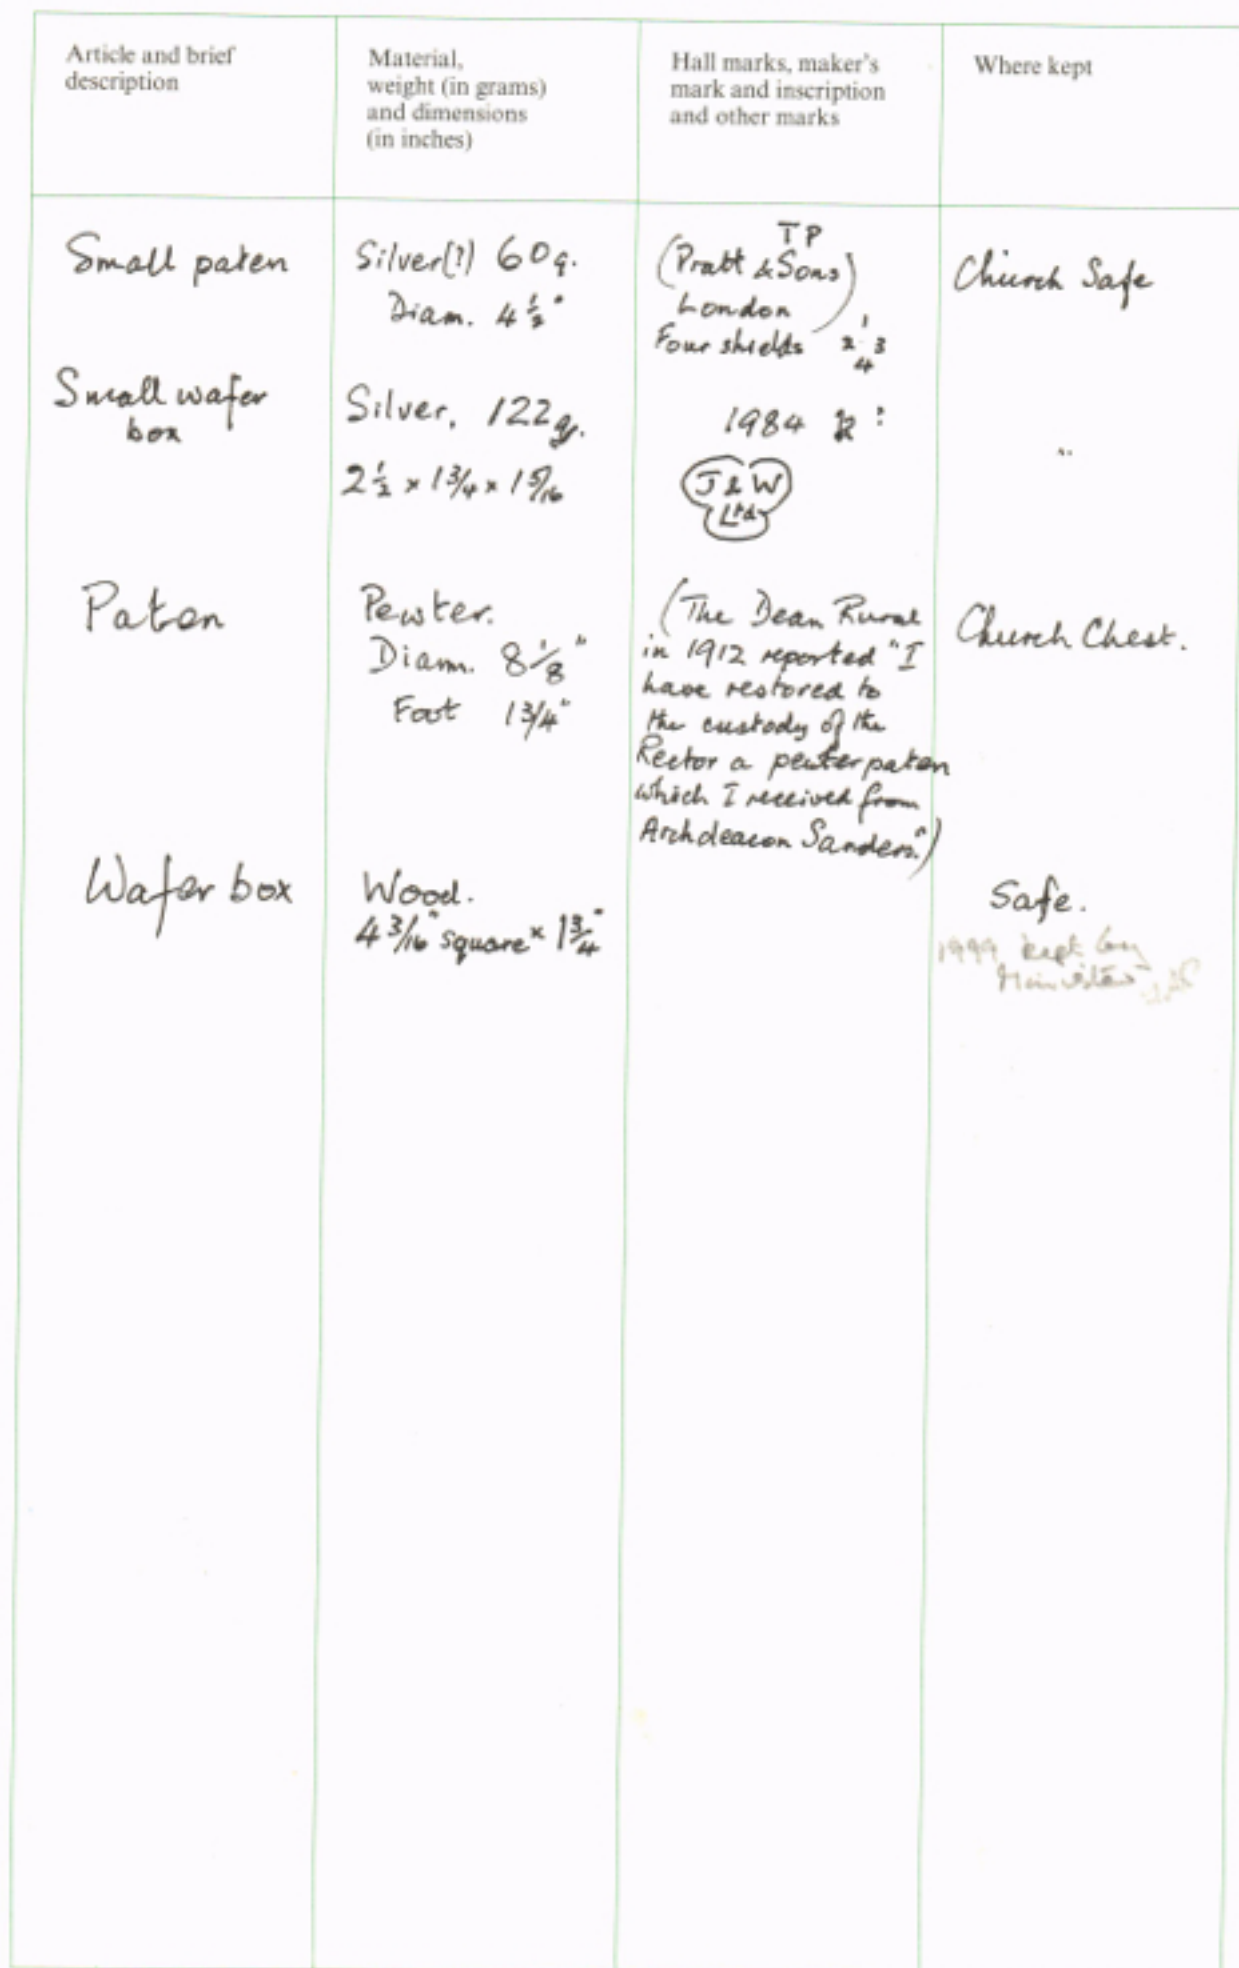 Article and brief
description
Material,
weight (in grams)
and dimensions
(in inches)
Hall marks, maker's
mark and inscription
and other marks
Where kept
Small paten
Silver(?) 60g.
Diam. 4 1/2"
TP
(Pratt & Sons)
London
Four shields 1 2 3 4
Church Safe
Small wafer
box
Silver, 122g.
2 1/2 x 1 3/4 x 1 5/16
1984
J & W
Ltd
"
Paten
Pewter.
Diam. 8 1/8"
Foot 1 3/4"
(The Dean Rural
in 1912 reported "I
have restored to
the custody of the
Rector a pewter paten
which I received from
Archdeacon Sanders.")
Church Chest.
Wafer box
Wood.
4 3/16" square x 1 3/4"
Safe.
1999 kept by
Minister